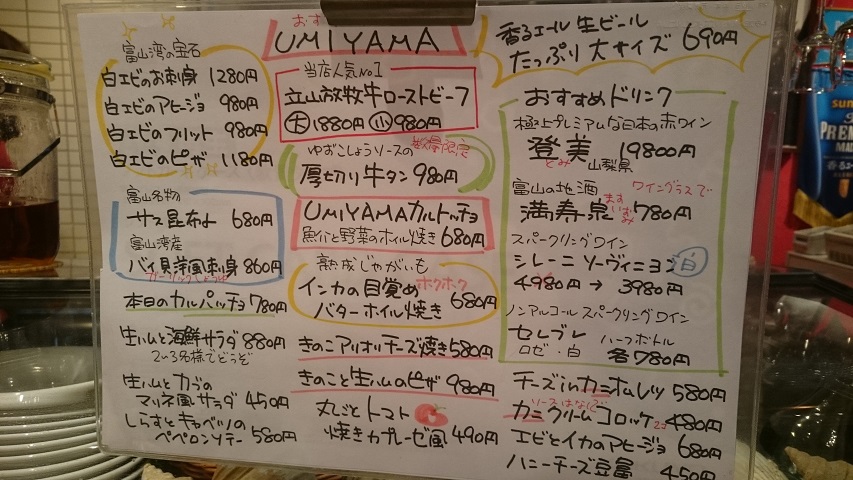 富山湾の宝石
白エビのお刺身 1280円
白エビのアヒージョ 980円
白エビのフリット 980円
白エビのピザ 1180円
富山名物
サス昆布〆 680円
富山湾産
バイ貝洋風刺身 860円
ガーリックしょうゆ
本日のカルパッチョ 780円
生ハムと海鮮サラダ 880円
2〜3名様でどうぞ
生ハムとカブの
マリネ風サラダ 450円
しらすとキャベツの
ペペロンソテー 580円
おす
UMIYAMA
当店人気No1
立山放牧牛ローストビーフ
大 1880円 小 980円
数量限定
ゆずこしょうソースの
厚切り牛タン 980円
UMIYAMAカルトッチョ
魚介と野菜のホイル焼き 680円
熟成じゃがいも
ホクホク
インカの目覚め
バターホイル焼き 680円
きのこアリオリチーズ焼き 580円
きのこと生ハムのピザ 980円
丸ごとトマト
焼きカプレーゼ風 490円
香るエール 生ビール
たっぷり 大サイズ 690円
おすすめドリンク
極上プレミアムな日本の赤ワイン
登美 19800円
とみ 山梨県
富山の地酒 ワイングラスで
満寿泉 780円
ますいずみ
スパークリングワイン
シレーニ ソーヴィニヨン 白
4980円 → 3980円
ノンアルコール スパークリングワイン
セレブレ ハーフボトル
ロゼ・白 各780円
チーズinカニオムレツ 580円
ソースはなしで
カニクリームコロッケ 2コ 480円
エビとイカのアヒージョ 680円
ハニーチーズ豆富 450円